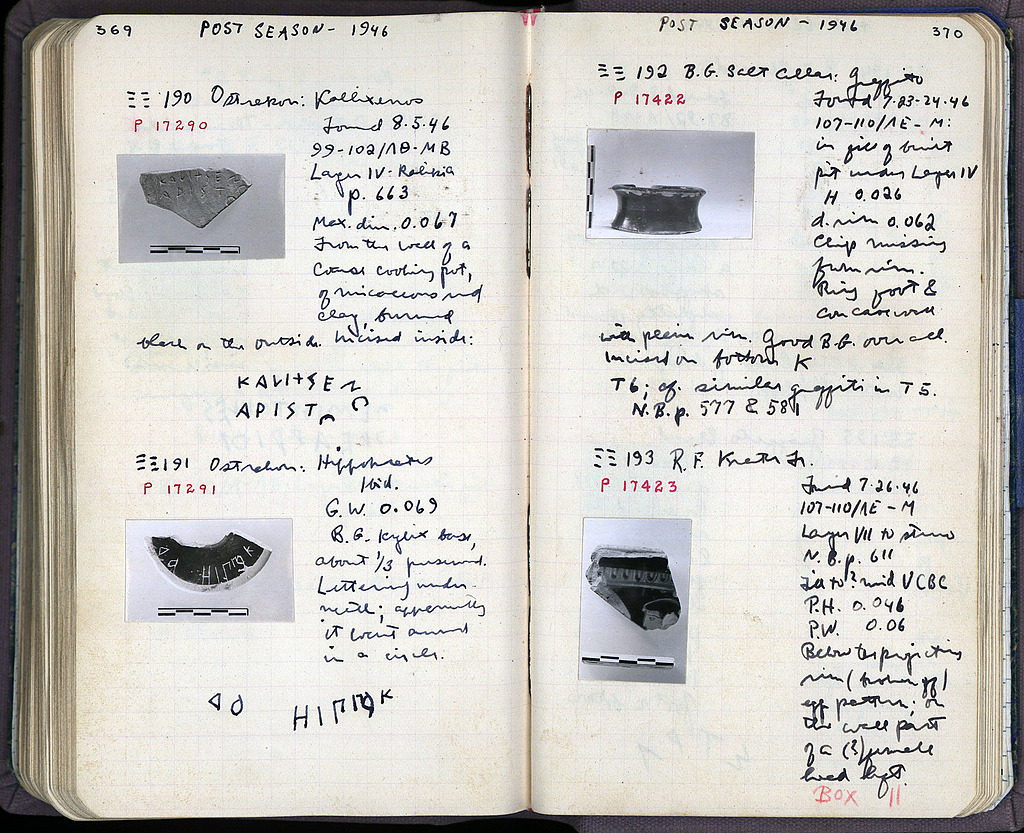 369 POST SEASON - 1946
ΞΞ 190 Ostrakon: Kallixenos
P 17290
Found 8.5.46
99-102/ΛΘ-ΜΒ
Layer IV:
p. 663
Max. dim. 0.067
From the wall of a
coarse cooking pot,
of micaceous red
clay, burned
black on the outside. Incised inside:
ΑΡΙΣΤ
ΞΞ 191 Ostrakon: Hippokrates
P 17291
Ibid.
G.W. 0.069
B.G. kylix base,
about 1/3 preserved.
Lettering under-
neath; apparently
it went around
in a circle.
POST SEASON - 1946 370
ΞΞ 192 B.G. Salt Cellar: Graffito
P 17422
Found 7.23-24.46
107-110/ΛΕ-Μ:
in fill of built
pit under Layer IV
H 0.026
d. rim 0.062
Chip missing
from rim.
Ring foot &
concave wall
with plain rim. Good B.G. over all.
Incised on bottom K
T6; cf. similar graffiti in T5.
N.B. p. 577 & 581
ΞΞ 193 R.F. Krater Fr.
P 17423
Found 7.26.46
107-110/ΛΕ-Μ
Layer VII to stereo
N.B. p. 611
to ? mid V C BC
P.H. 0.046
P.W. 0.06
Below the projecting
rim (broken off)
egg pattern; on
the wall part
of a (?) female
head left.
BOX 11